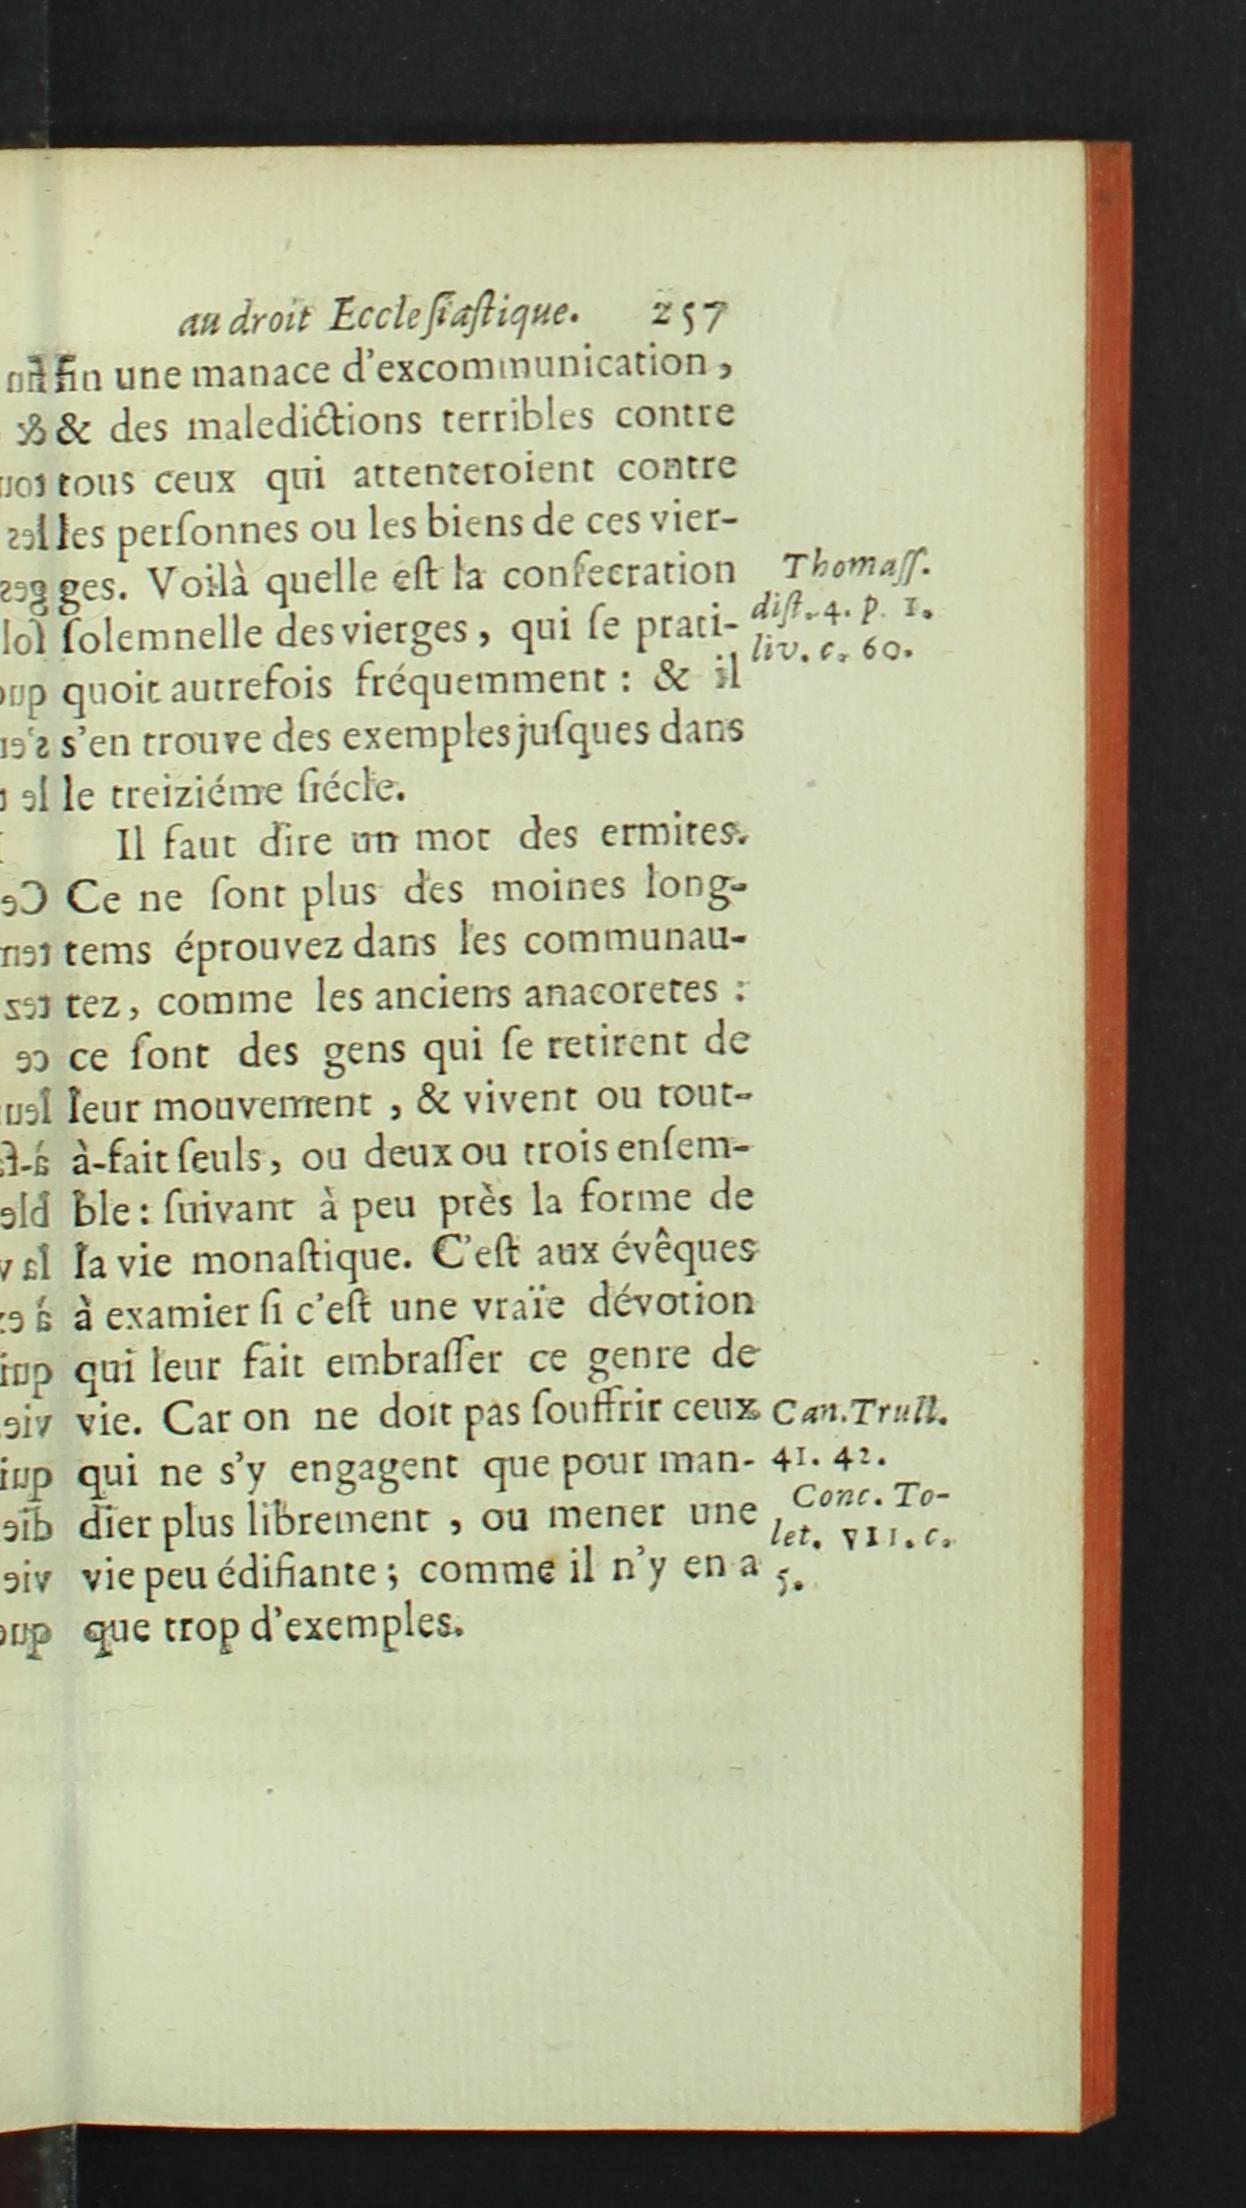 au droit Eccleſiaſtique. 257
fin une manace d'excommunication,
& des maledictions terribles contre
tous ceux qui attenteroient contre
les perſonnes ou les biens de ces vier-
ges. Voilà quelle eſt la conſecration
ſolemnelle des vierges, qui ſe prati-
quoit autrefois fréquemment : & il
s'en trouve des exemples juſques dans
le treiziéme ſiécle.
Thomaſſ.
diſt. 4. p. 1.
liv. c. 60.
Il faut dire un mot des ermites.
Ce ne ſont plus des moines long-
tems éprouvez dans les communau-
tez, comme les anciens anacoretes :
ce ſont des gens qui ſe retirent de
leur mouvement, & vivent ou tout-
à-fait ſeuls, ou deux ou trois enſem-
ble : ſuivant à peu près la forme de
la vie monaſtique. C'eſt aux évêques
à examier ſi c'eſt une vraïe dévotion
qui leur fait embraſſer ce genre de
vie. Car on ne doit pas ſouffrir ceux
qui ne s'y engagent que pour man-
dier plus librement, ou mener une
vie peu édifiante ; comme il n'y en a
que trop d'exemples.
Can. Trull.
41. 42.
Conc. To-
let. VII. c.
5.